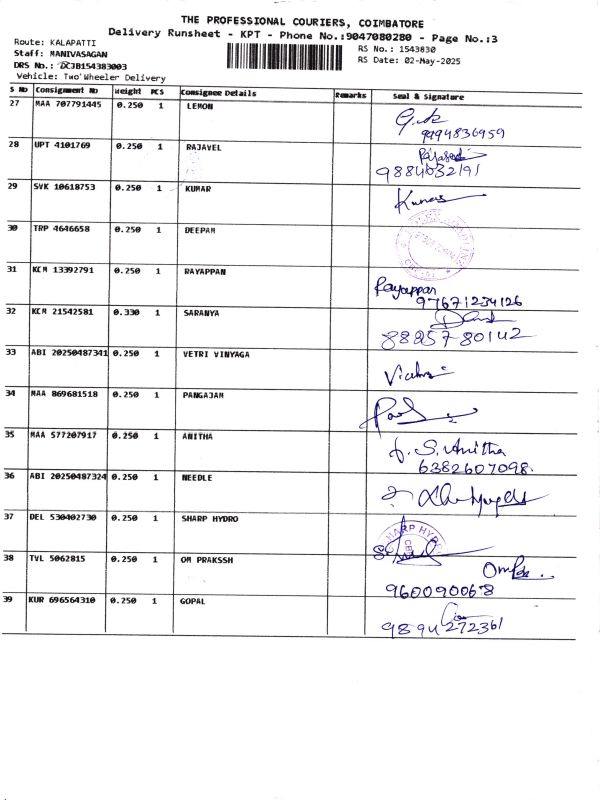 THE PROFESSIONAL COURIERS, COIMBATORE
Delivery Runsheet - KPT - Phone No.:9047080280 - Page No.:3
Route: KALAPATTI
RS No.: 1543830
Staff: MANIVASAGAN
RS Date: 02-May-2025
DRS No.: DCJB154383003
Vehicle: Two'Wheeler Delivery
S No Consignment No Weight PCS Consignee Details Remarks Seal & Signature
27 MAA 707791445 0.250 1 LEMON
9994836959
28 UPT 4101769 0.250 1 RAJAVEL
9884632191
29 SVK 10618753 0.250 1 KUMAR Kumar
30 TRP 4646658 0.250 1 DEEPAM
31 KCM 13392791 0.250 1 RAYAPPAN Rayappan
97671234126
32 KCM 21542581 0.330 1 SARANYA
8825780142
33 ABI 20250487341 0.250 1 VETRI VINYAGA
34 MAA 869681518 0.250 1 PANGAJAM
35 MAA 577207917 0.250 1 ANITHA S. Anitha
6382607098.
36 ABI 20250487324 0.250 1 NEEDLE
37 DEL 530402730 0.250 1 SHARP HYDRO SHARP HYDRO
38 TVL 5062815 0.250 1 OM PRAKSSH
960090068
39 KUR 696564310 0.250 1 GOPAL
9894272361